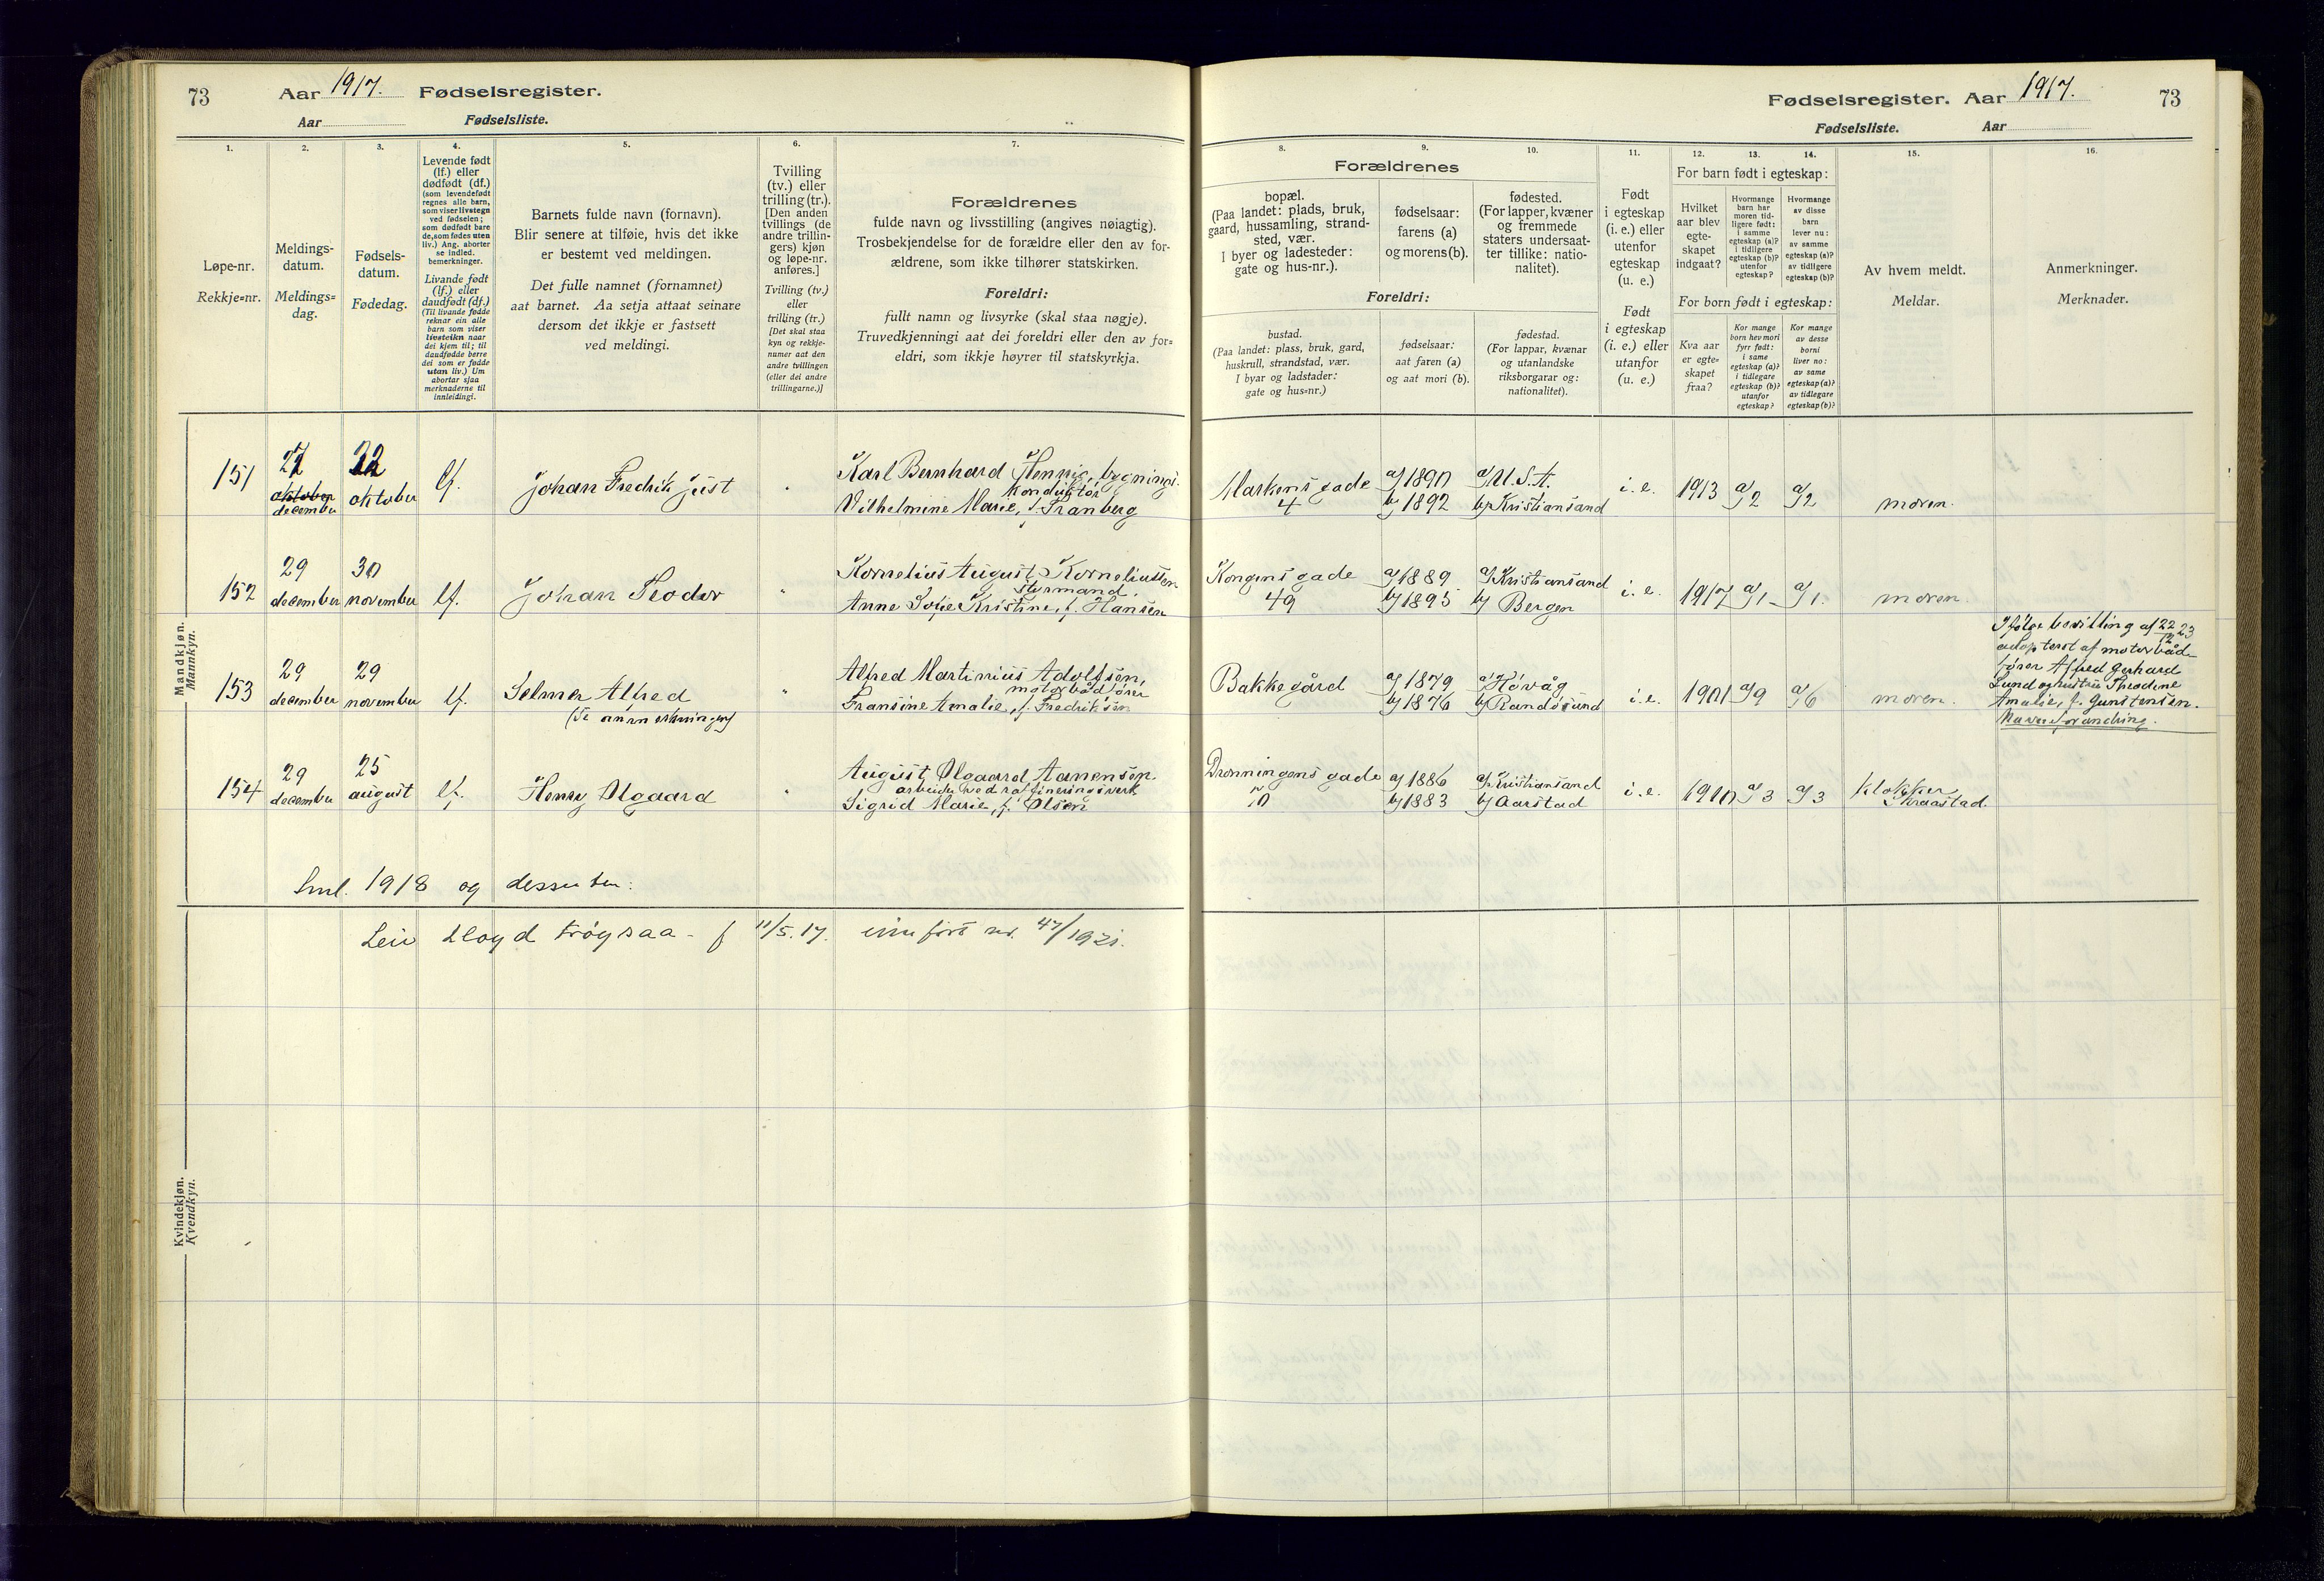 73
Aar 1917. Fødselsregister.
Aar Fødselsliste.
Fødselsregister. Aar 1917.
73
Fødselsliste. Aar
1.
2.
3.
4.
5.
6.
7.
8.
9.
10.
11.
12.
13.
14.
15.
16.
Løpe-nr.
Rekkje=nr.
Meldings-
datum.
Meldings=
dag.
Fødsels-
datum.
Fødedag.
Levende født
(lf.) eller
dødfødt (df.)
(som levendefødt
regnes alle barn,
som viser livstegn
ved fødselen;
som dødfødt bare
de, som fødes uten
liv.) Ang. aborter
se indled.
bemerkninger.
Livande født
(lf.) eller
daudfødt (df.)
(Til livande fødde
reknar ein alle
barn som viser
livsteikn naar
dei kjem til; til
daudfødde berre
dei som er fødde
utan liv.) Um
abortar sjaa
merknaderne til
innleidingi.
Barnets fulde navn (fornavn).
Blir senere at tilføie, hvis det ikke
er bestemt ved meldingen.
Det fulle namnet (fornamnet)
aat barnet. Aa setja attaat seinare
dersom det ikkje er fastsett
ved meldingi.
Tvilling
(tv.) eller
trilling (tr.).
[Den anden
tvillings (de
andre trillin-
gers) kjøn
og løpe-nr.
anføres.]
Tvilling (tv.)
eller
trilling (tr.)
[Det skal staa
kyn og rekkje-
numer aat den
andre tvillingen
(eller dei andre
trillingarne.)]
Forældrenes
fulde navn og livsstilling (angives nøiagtig).
Trosbekjendelse for de forældre eller den av for-
ældrene, som ikke tilhører statskirken.
Foreldri:
fullt namn og livsyrke (skal staa nøgje).
Truvedkjenningi aat dei foreldri eller den av for=
eldri, som ikkje høyrer til statskyrkja.
Forældrenes
bopæl.
(Paa landet: plads, bruk,
gaard, hussamling, strand-
sted, vær.
I byer og ladesteder:
gate og hus-nr.).
fødselsaar:
farens (a)
og morens (b).
fødested.
(For lapper, kvæner
og fremmede
staters undersaat-
ter tillike: natio-
nalitet).
Foreldri:
bustad.
(Paa landet: plass, bruk, gard,
huskrull, strandstad, vær.
I byar og ladstader:
gate og hus=nr.)
fødselsaar:
aat faren (a)
og aat mori (b).
fødestad.
(For lappar, kvænar
og utanlandske
riksborgarar og:
nationalitet).
Født
i egteskap
(i. e.) eller
utenfor
egteskap
(u. e.)
Født
i egteskap
(i. e.) eller
utanfor
egteskap
(u. e.)
For barn født i egteskap:
Hvilket
aar blev
egte-
skapet
indgaat?
Hvormange
barn har
moren tid-
ligere født:
i samme
egteskap (a)?
i tidligere
egteskap (b)?
utenfor
egteskap?
Hvormange
av disse
barn
lever nu:
av samme
egteskap (a)?
av tidligere
egteskap (b)?
For born født i egteskap:
Kva aar
er egte=
skapet
fraa?
Kor mange
born hev mori
fyrr født:
i same
egteskap (a)?
i tidlegare
egteskap (b)?
utanfor
egteskap?
Kor mange
av desse
borni
liver no:
av same
egteskap (a)?
av tidlegare
egteskap (b)?
Av hvem meldt.
Meldar.
Anmerkninger.
Merknader.
Mandkjøn.
Mannkyn.
151
27
oktober
december
22
oktober
lf.
Johan Fredrik Just
Karl Bernhard Hennig, bygnings-
konduktør
Vilhelmine Marie, f. Tranberg
Markens gade
4
a) 1890
b) 1892
a) U.S.A.
b) Kristiansand
i. e.
1913
a) 2
a) 2
moren.
152
29
december
30
november
lf.
Johan Teodor
Kornelius August Korneliussen
styrmand.
Anne Sofie Kristine, f. Hansen
Kongens gade
49
a) 1889
b) 1895
a) Kristiansand
b) Bergen
i. e.
1917
a) 1
a) 1.
moren.
153
29
december
29
november
lf.
Selmer Alfred
(Se anmerkningen)
Alfred Martinius Adolfsen,
motorbådfører
Fransine Amalie, f. Fredriksen
Bakkegård
a) 1879
b) 1876
a) Høvåg
b) Randøsund
i. e.
1901
a) 9
a) 6
moren.
Ifølge bevilling af
adoptert af motorbåd-
fører Alfred Gerhard
Lund og hustru Theodine
Amalie, f. Gunstensen.
Navneforandring.
154
29
december
25
august
lf.
Henry Olgaard
August Olgaard Aanensen.
arbeider ved raffineringsverk
Sigrid Marie, f. Olsen
Dronningens gade
70
a) 1886
b) 1883
a) Kristiansand
b) Aarstad
i. e.
1910
a) 3
a) 3
Klokker
Skraastad.
Sml. 1918 og dessuten:
Kvindekjøn.
Kvendkyn.
Leiv Lloyd Trøgsaa - f 11/5.17. innført nr. 47/1921.